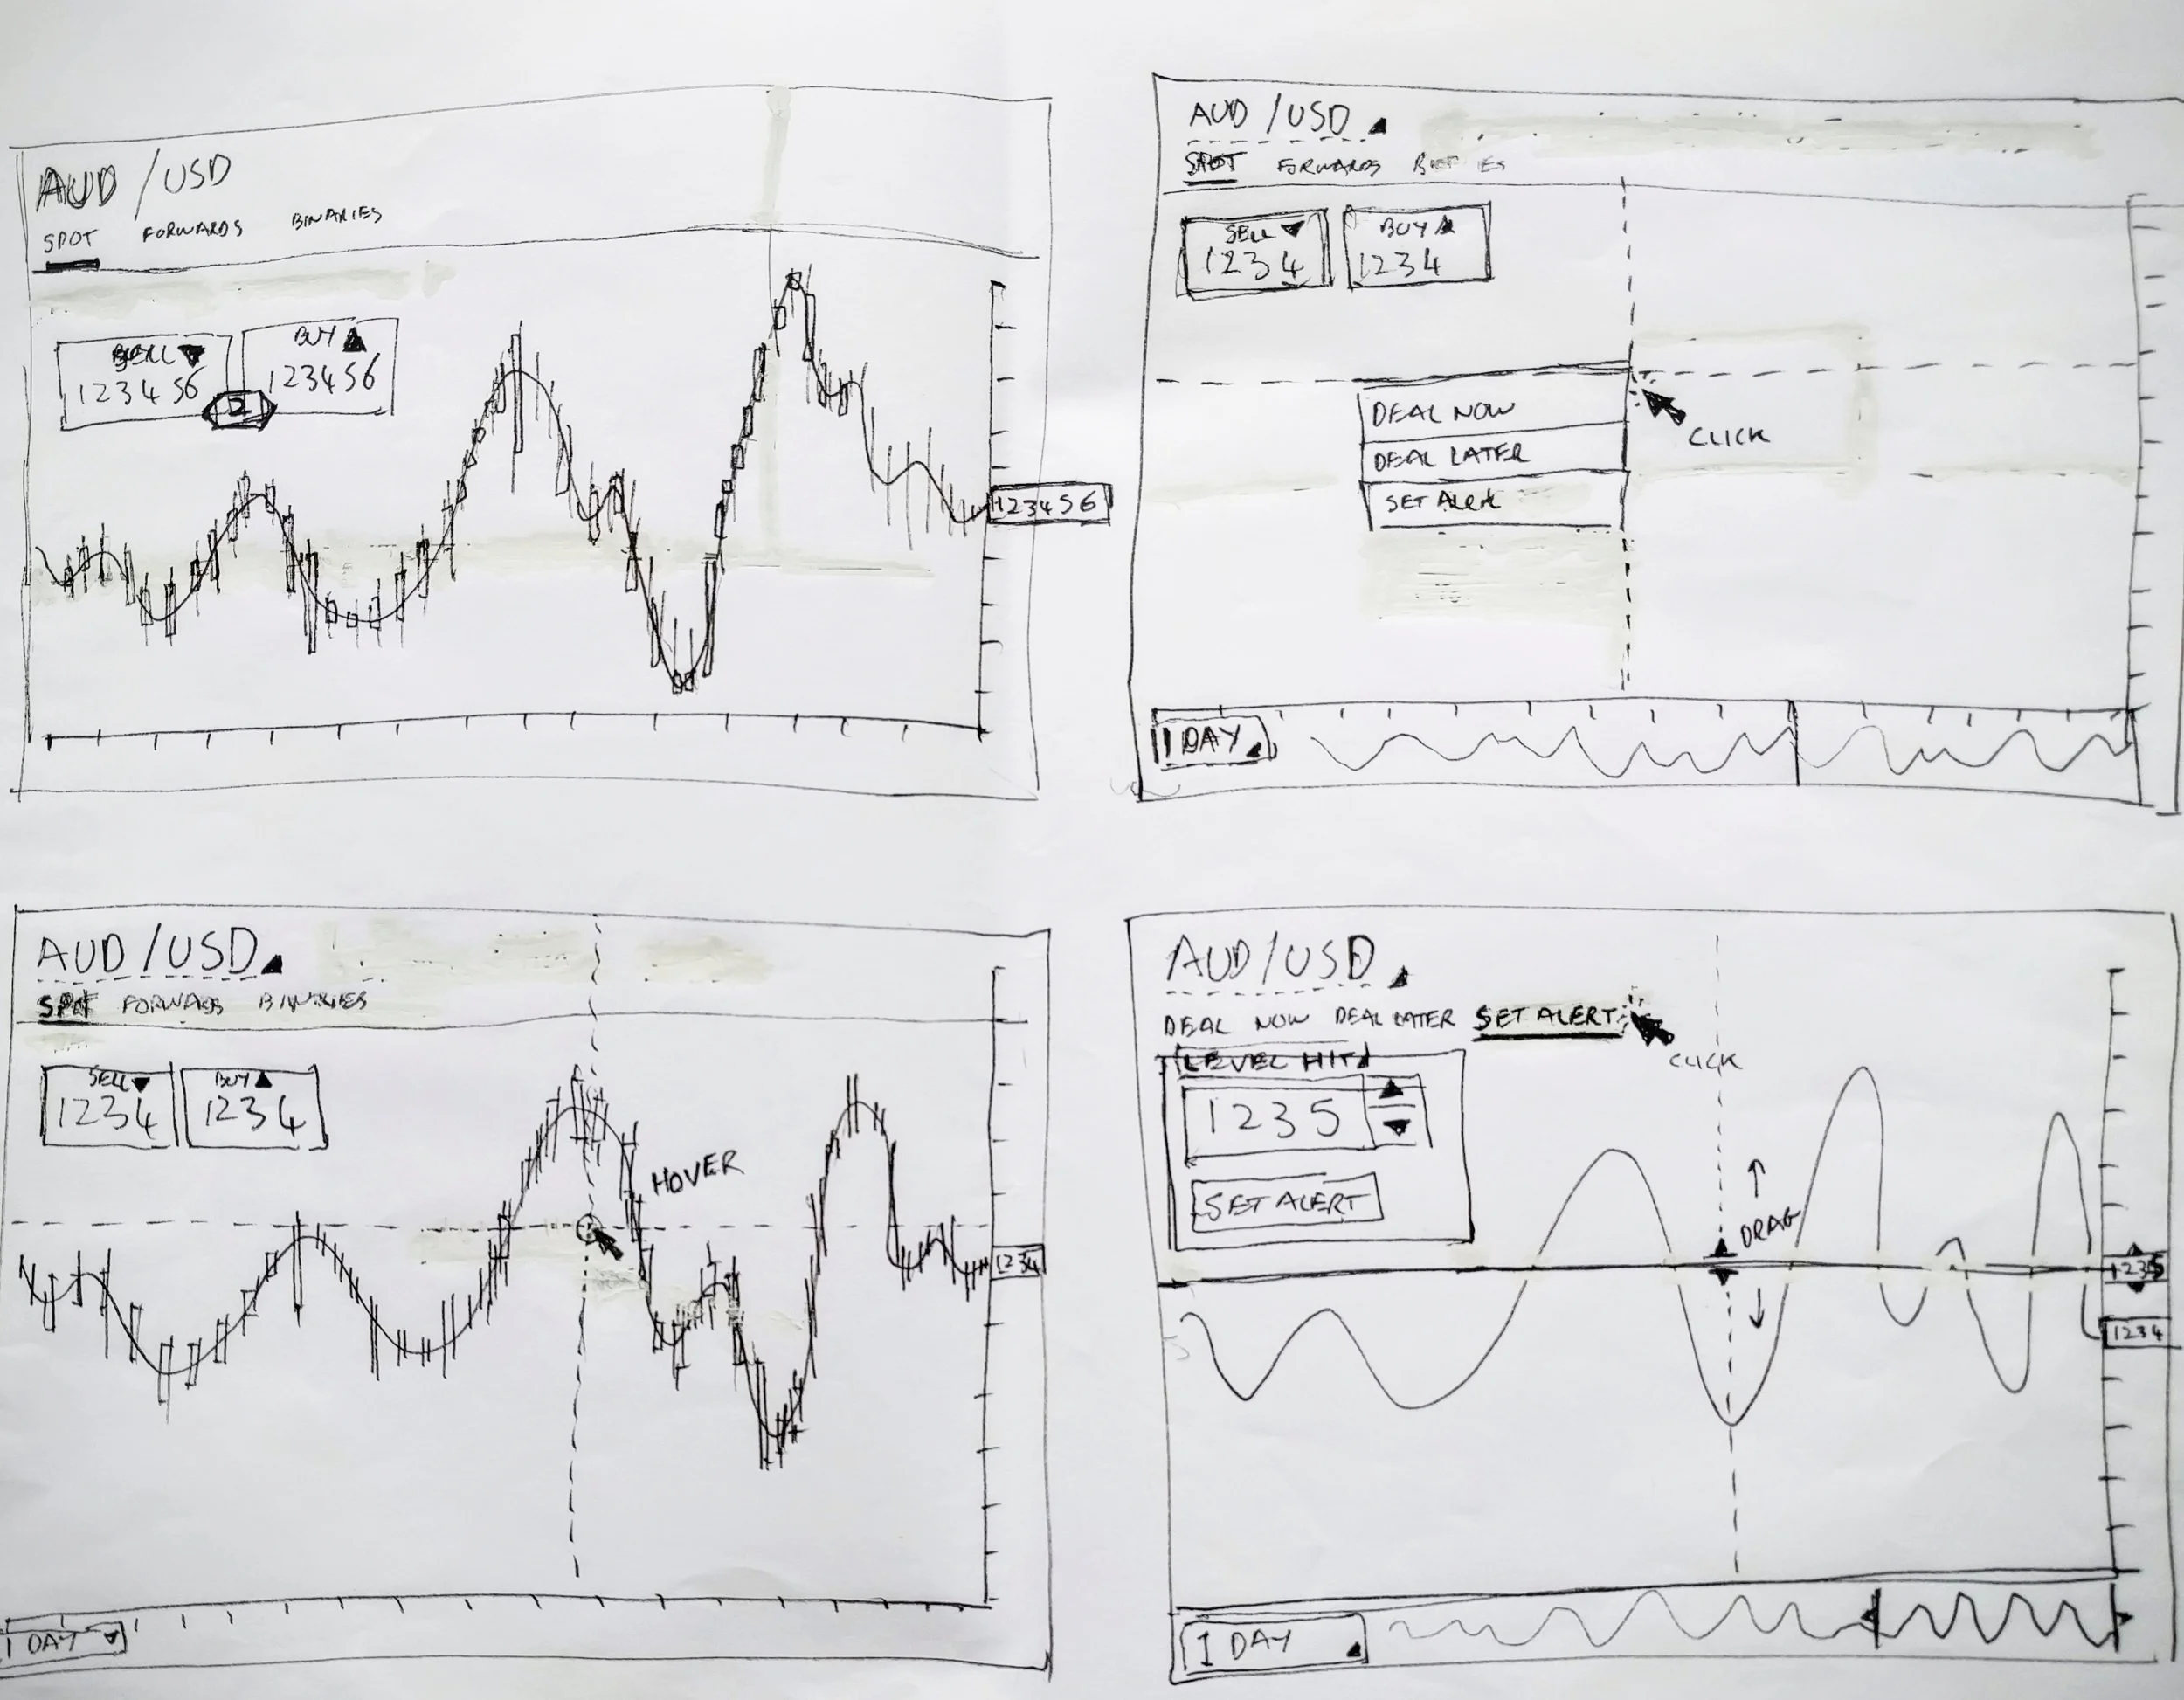 AUD / USD
SPOT FORWARDS BINARIES
BUY
123456 123456
2
123456
AUD / USD
SPOT FORWARDS
SELL BUY
1234 1234
DEAL NOW
DEAL LATER
SET ALERT
CLICK
1 DAY
AUD / USD
SPOT FORWARDS BINARIES
SELL BUY
1234 1234
HOVER
1234
1 DAY
AUD / USD
DEAL NOW DEAL LATER SET ALERT
CLICK
LEVEL HIT
1235
SET ALERT
DRAG
1235
1234
1 DAY